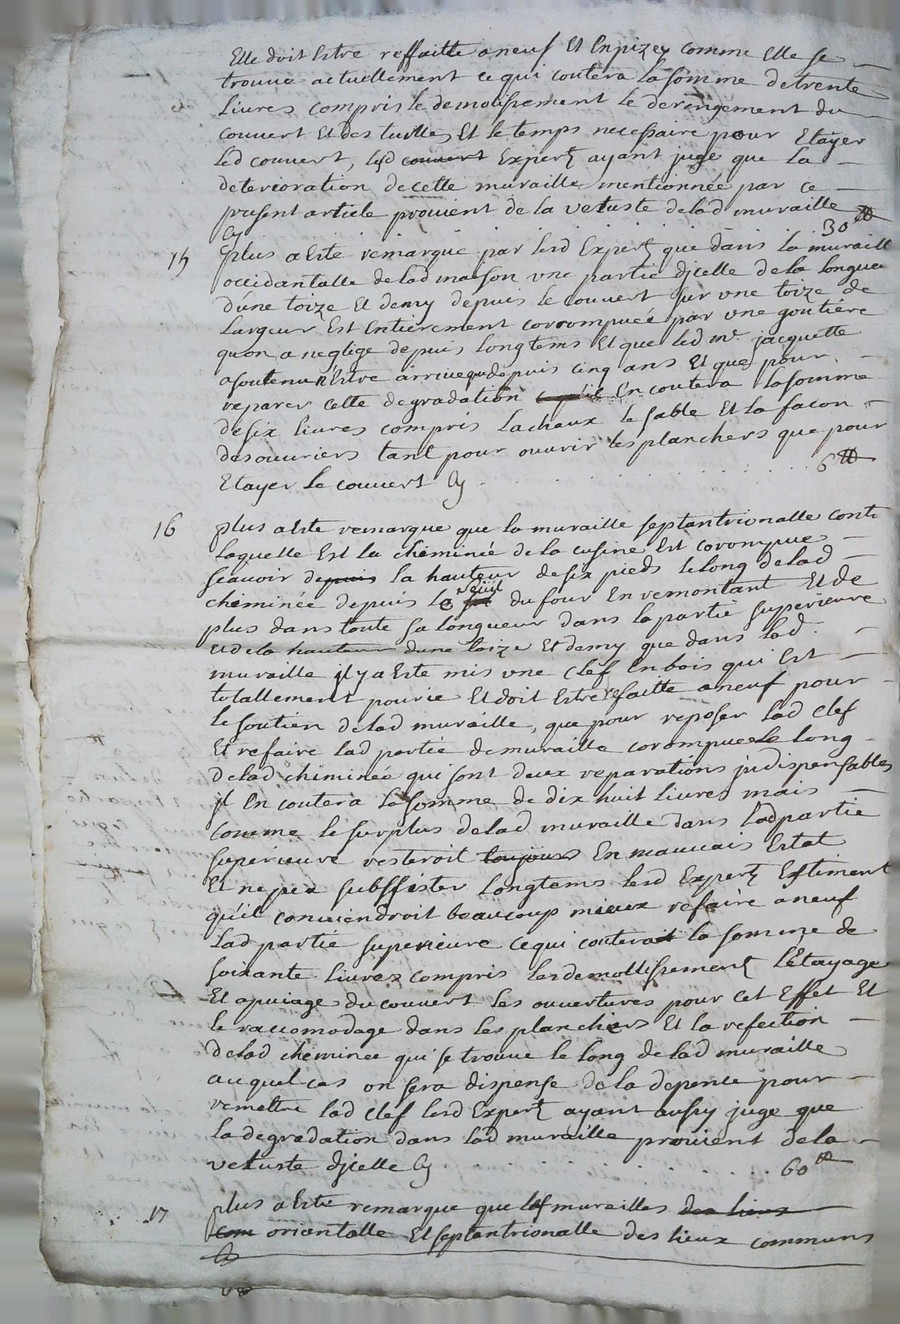 Elle doit Estre reffaitte aneuf Et En pizey comme Elle se
trouve actuellement ce qui coutera la somme de trente
Livres compris le demolissement le derengement du
couvert Et des tuilles Et le temps necessaire pour Etayer
led couvert, lesd couvert Expert ayant jugé que La
deterioration de cette muraille mentionnée par ce
present article provient de la vetusté delad muraille
Cy 30 ₶
15 plus a Esté remarqué par lesd Expert que dans la muraille
occidantalle delad maison une partie djcelle de la longueur
d'une toize Et demy depuis le couvert sur une toize de
Largeur Est Entierement corrompueé par une goutiére
quon a neglige depuis longtems Et que led mr. jacquette
a soutenu n'Estre arrivé que depuis cinq ans Et que pour
reparer cette degradation En coutera la somme
de six livres compris la chaux le sable Et la facon
des ouvriers tant pour ouvrir les planchers que pour
Etayer le couvert Cy 6 ₶
16 plus a Esté remarqué que la muraille septantrionalle cont
laquelle Est la cheminée de la cusine Est corompue
scavoir depuis la hauteur de six pieds le long delad
cheminée depuis du four En remontant Et de
plus dans toute sa longueur dans la partie superieure
Et de la hauteur dune toize Et demy que dans lad
muraille jl y a Esté mis une clef En bois qui Est
totallement pourie Et doit Estre refaitte aneuf pour
le soutien delad muraille, que pour reposer lad clef
Et refaire lad partie de muraille corompue le long
delad cheminée qui sont deux reparations jndispensables
jl En coutera la somme de dix huit livres mais
comme le surplus delad muraille dans lad partie
superieure resteroit toujours En mauvais Estat
Et ne peu subssister longtems lesd Expert Estiment
qu'il conviendroit beaucoup mieux refaire aneuf
Lad partie superieure ce qui couterait la somme de
soixante livres compris les demollissement L'Etayage
Et apuiage du couvert les ouvertures pour cet Effet Et
le raccomodage dans les planchers Et la refection
delad cheminée qui se trouve le long delad muraille
auquel cas on sera dispensé de la depence pour
remettre lad clef lesd Expert ayant aussy jugé que
la degradation dans lad muraille provient de la
vetusté djcelle Cy 60 ₶
17 plus a Esté remarqué que les murailles des lieux
com orientalle Et septantrionalle des lieux communs